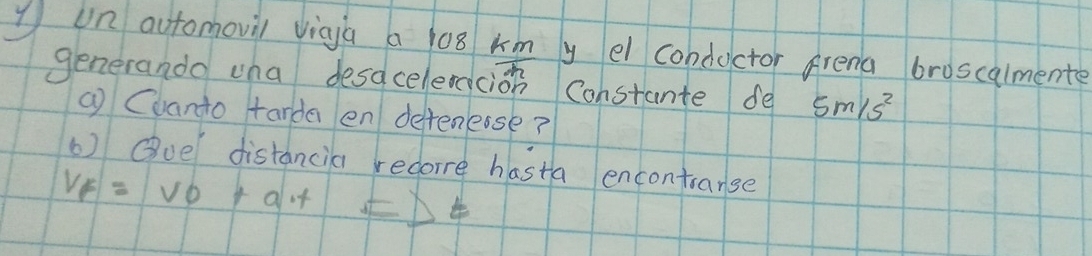 4) Un automovil viaja a 108 km/h y el conductor frena bruscalmente
generando una desaceleración Constante de 5m/s²
a) Cuanto tarda en detenerse?
b) Que distancia recorre hasta encontrarse
VF = Vo + a.t => t